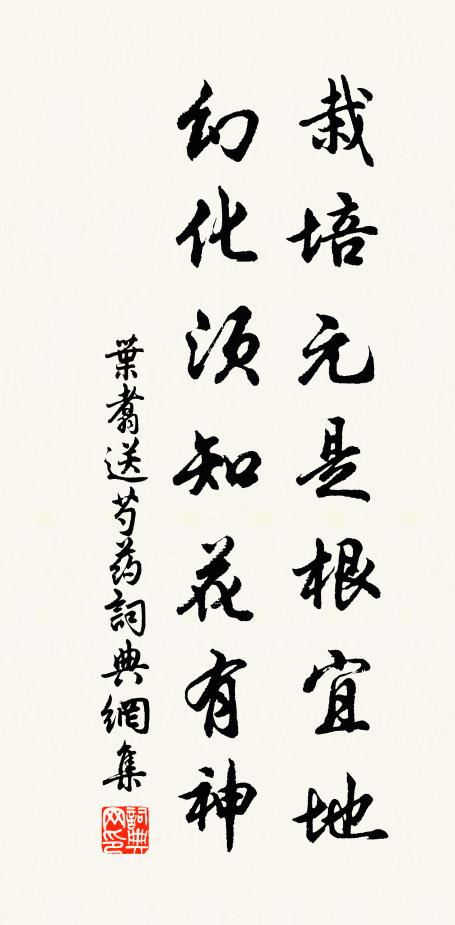 栽培元是根宜地
幻化须知花有神
葉翥送芍药詞典網集
詞典网印